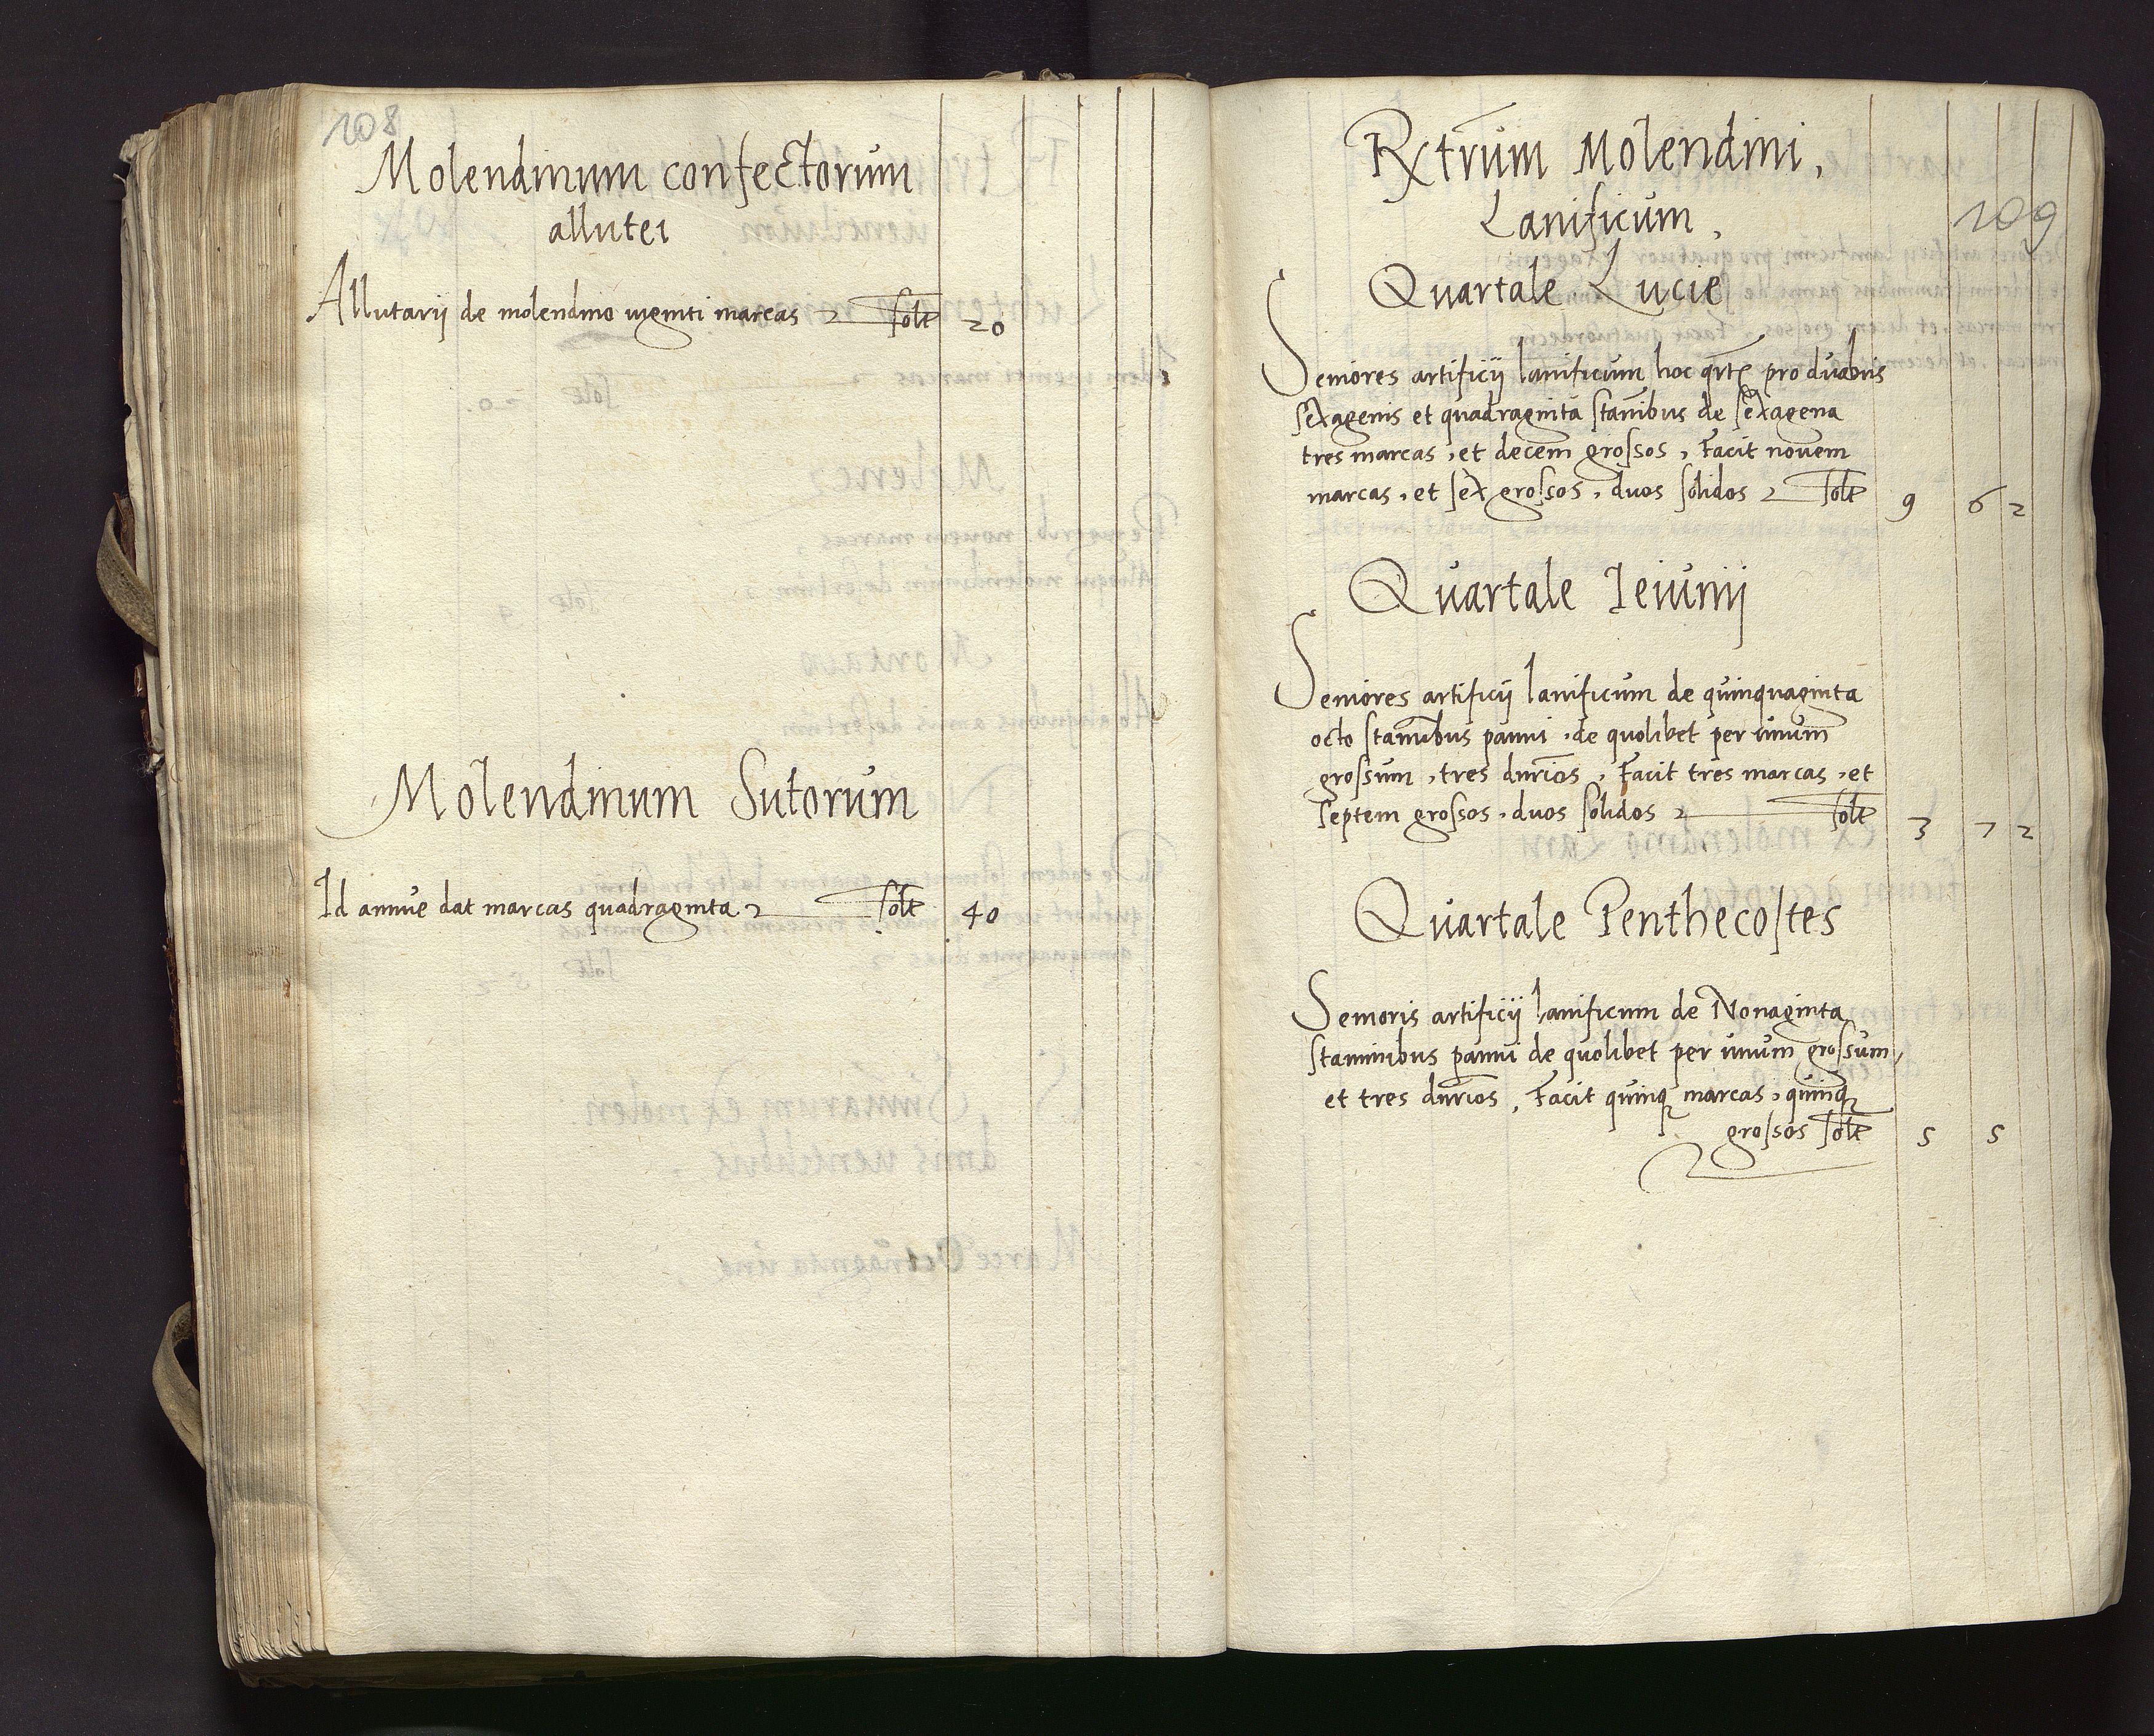 108
Molendinum confectorum
allutei
Allutarij de molendino viginti marcas solt 20
Molendinum Sutorum
Id annue dat marcas quadraginta solt 40
Rxtrum Molendini,
Lanificum,
109
Quartale Lucie
Seniores artificij lanificum hoc qrte pro duabus
sexagenis et quadraginta stanibus de sexagena
tres marcas, et decem grossos, Facit novem
marcas, et sex grossos, duos solidos solt 9 6 2
Quartale Ieiunij
Seniores artificij lanificum de quinquaginta
octo staminibus panni, de quolibet per unum
grossum, tres durios, Facit tres marcas, et
septem grossos, duos solidos solt 3 7 2
Quartale Penthecostes
Senioris artificij lanificum de Nonaginta
staminibus panni de quolibet per unum grossum,
et tres durios, Facit quinq marcas, quinq
grossos solt 5 5